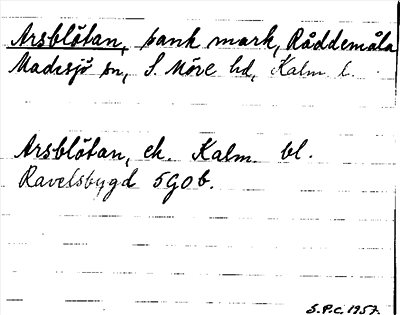 Arsblötan, sank mark, Råddemåla
Madesjö sn, S. Möre hd, Kalm. l.
Arsblötan, ek. Kalm. bl.
Ravelsbygd 5G0b.
S.P.C. 1957.